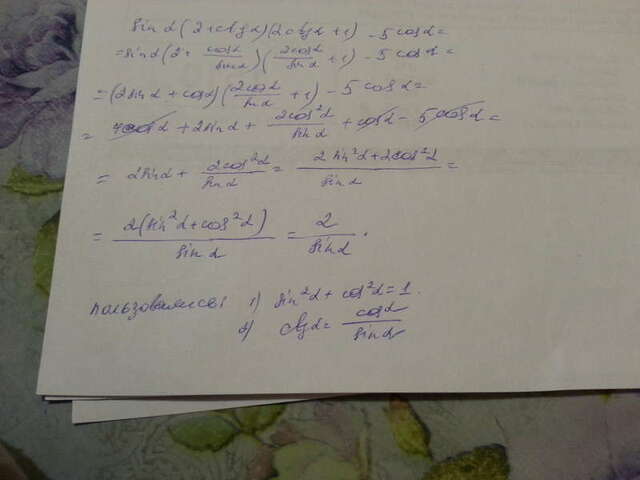 sin α (2 + ctg α)(2ctg α + 1) - 5 cos α =
= sin α (2 + cos α / sin α)(2cos α / sin α + 1) - 5 cos α =
= (2 sin α + cos α)(2cos α / sin α + 1) - 5 cos α =
= 4cos α + 2 sin α + 2cos² α / sin α + cos α - 5 cos α =
= 2 sin α + 2cos² α / sin α = 2 sin² α + 2cos² α / sin α =
= 2(sin² α + cos² α) / sin α = 2 / sin α .
пользовались 1) sin² α + cos² α = 1.
2) ctg α = cos α / sin α